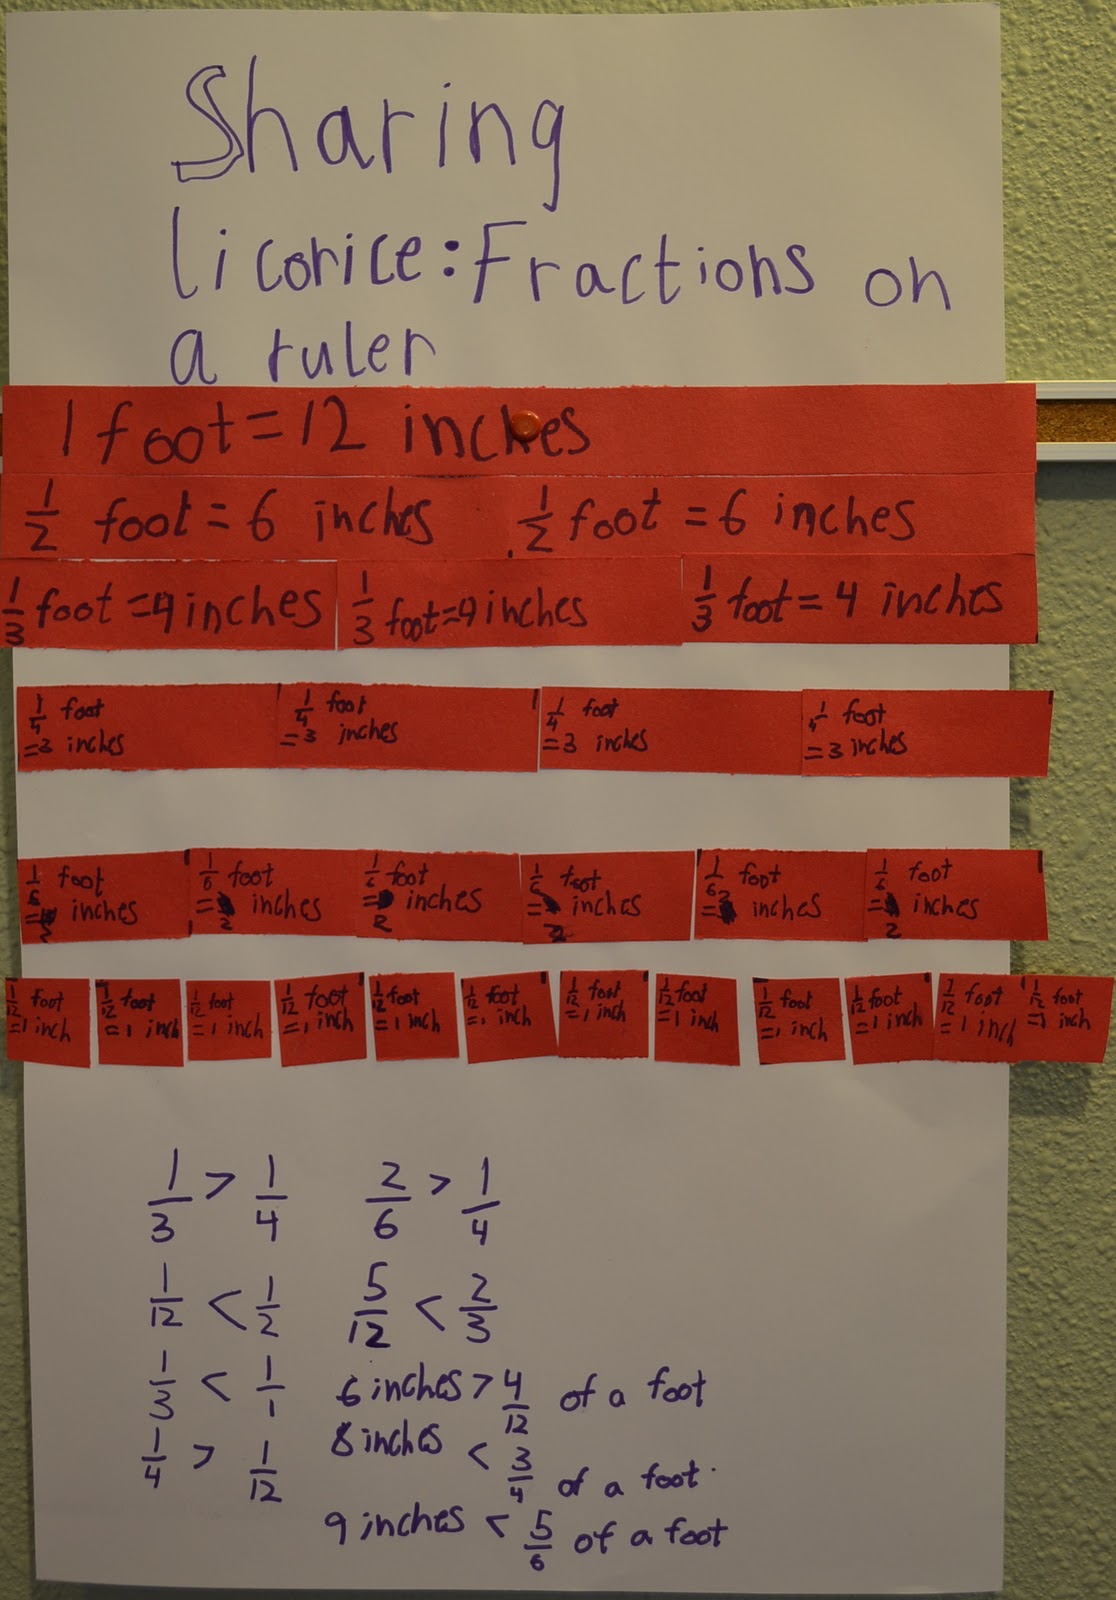 Sharing
licorice: Fractions on
a ruler
1 foot = 12 inches
1/2 foot = 6 inches 1/2 foot = 6 inches
1/3 foot = 4 inches 1/3 foot = 4 inches 1/3 foot = 4 inches
1/4 foot
= 3 inches
1/4 foot
= 3 inches
1/4 foot
= 3 inches
1/4 foot
= 3 inches
1/6 foot
= 2 inches
1/6 foot
= 2 inches
1/6 foot
= 2 inches
1/6 foot
= 2 inches
1/6 foot
= 2 inches
1/6 foot
= 2 inches
1/12 foot
= 1 inch
1/12 foot
= 1 inch
1/12 foot
= 1 inch
1/12 foot
= 1 inch
1/12 foot
= 1 inch
1/12 foot
= 1 inch
1/12 foot
= 1 inch
1/12 foot
= 1 inch
1/12 foot
= 1 inch
1/12 foot
= 1 inch
1/12 foot
= 1 inch
1/12 foot
= 1 inch
1/3 > 1/4
1/12 < 1/2
1/3 < 1/1
1/4 > 1/12
2/6 > 1/4
5/12 < 2/3
6 inches > 4/12 of a foot
8 inches < 3/4 of a foot.
9 inches < 5/6 of a foot